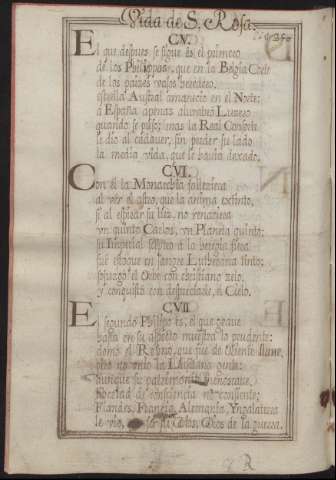 Vida de S. Rosa.
CV.
El que despues se sigue es el primero
de los Philippos, que en la Belgia Corte
de los paises vajos heredero,
estrella Austral amanecio en el Norte;
a España apenas alumbró Lucero
quando se puso; mas la Real Consorte
se dio al cadaver, sin poder su lado
la media vida, que le hauia dexado.
CVI.
Con el la Monarchia
al ver el astro, que la anima extinto,
si al espirar su luz, no renaciera
vn quinto Carlos, vn Planeta quinto:
su Imperial a la heregia fiera
fue estoque en sangre Lutherana tinto;
sojuzgó el Orbe con christiano zelo,
y conquistó con despreciarle, el Cielo.
CVII.
El segundo Philipo es, el que graue
hasta en su aspecto muestra lo prudente:
domó el Reyno, que fue de Oriente llaue,
la Lusitana gente:
aunque su patrimonio menoscaue,
libertad de consciencia no consiente;
Flandes, Francia, Alemania, Yngalaterra
le vio, de la guerra.